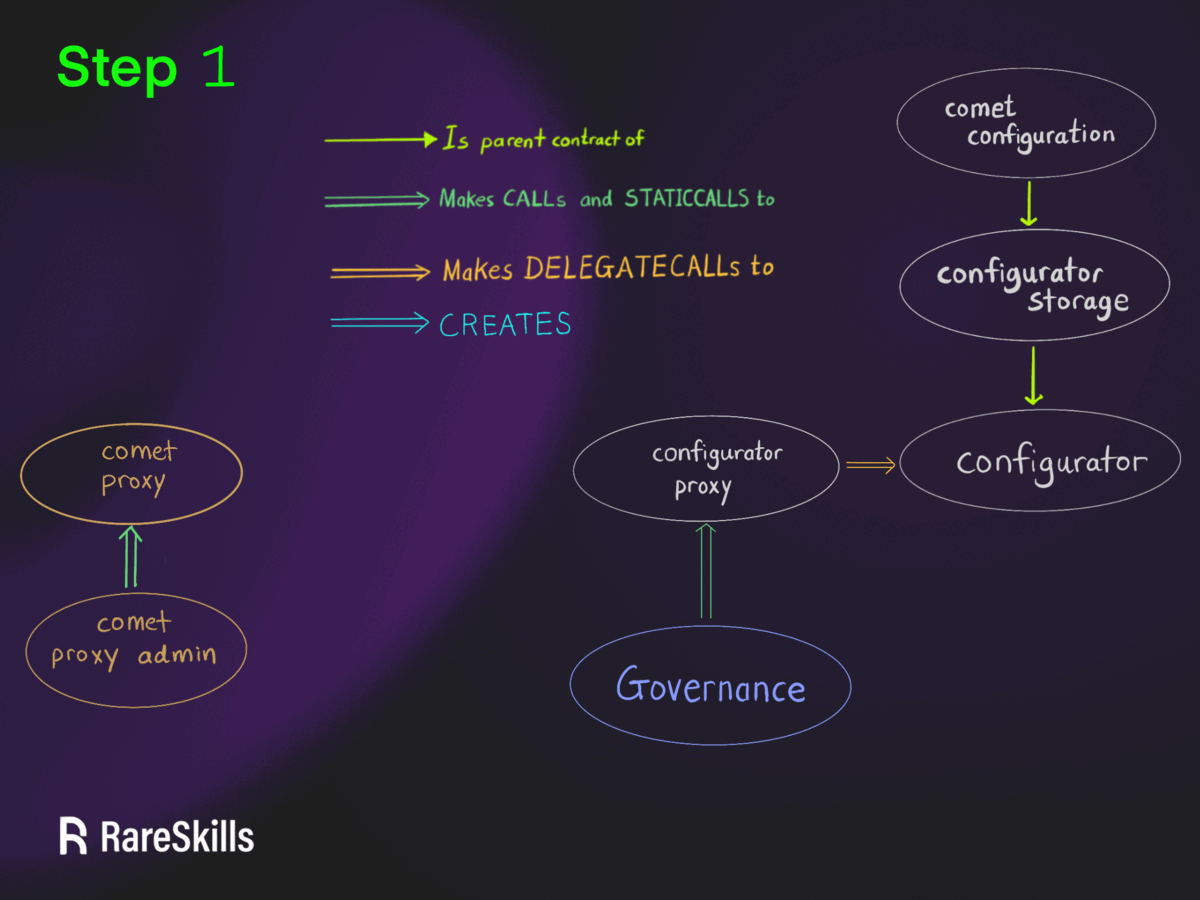 Step 1
Is parent contract of
Makes CALLs and STATICCALLS to
Makes DELEGATECALLs to
CREATES
comet
configuration
configurator
storage
comet
proxy
configurator
proxy
configurator
comet
proxy admin
Governance
RareSkills